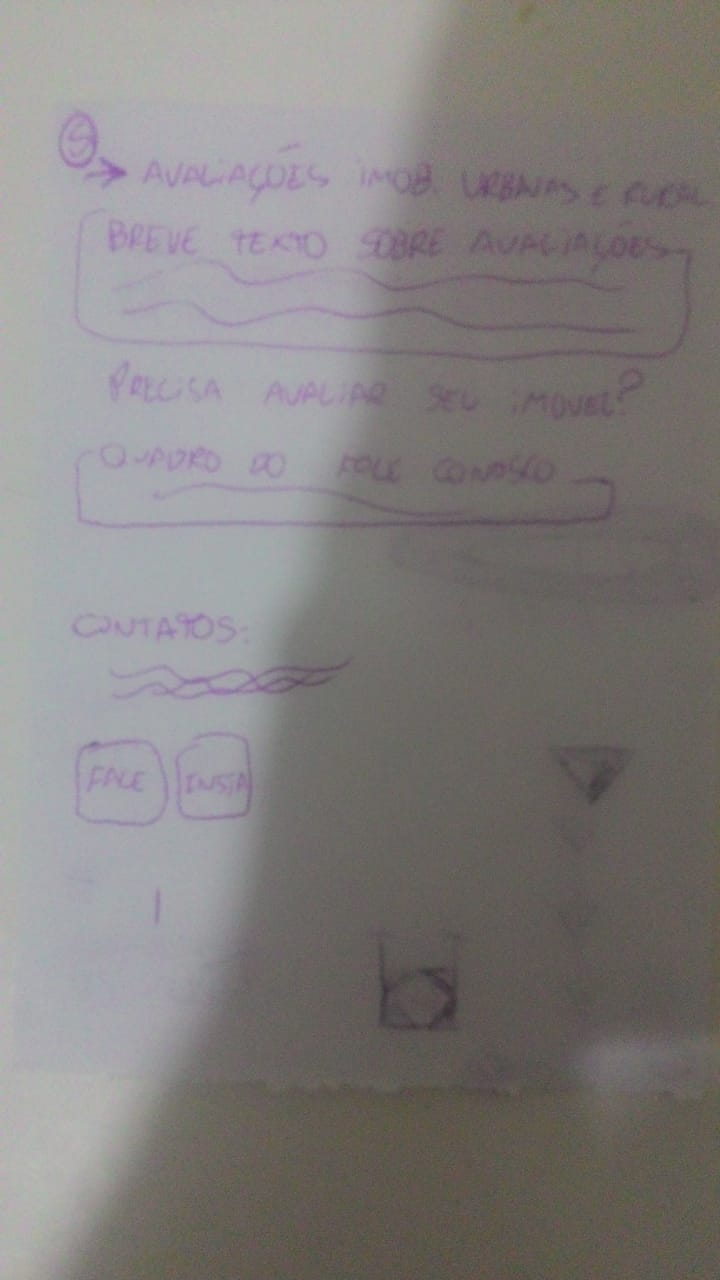 5
→ AVALIAÇÕES IMOB. URBANAS E RURAL
BREVE TEXTO SOBRE AVALIAÇÕES
PRECISA AVALIAR SEU IMOVEL?
QUADRO DO FALE CONOSCO
CONTATOS:
FALE INSTA